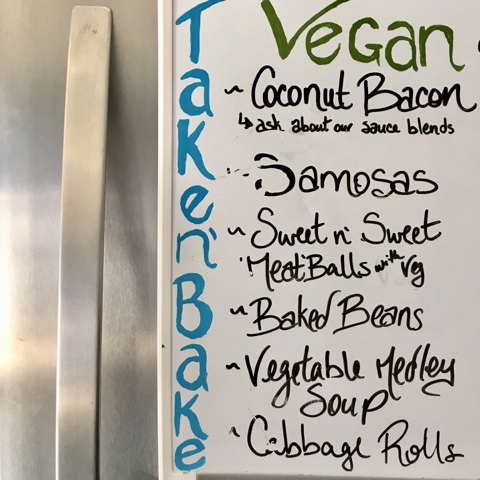 Taken'Bake
Vegan
~ Coconut Bacon
↳ ask about our sauce blends
~ Samosas
~ Sweet n' Sweet
"MeatBalls with Veg
~ Baked Beans
~ Vegetable Medley
Soup
~ Cabbage Rolls